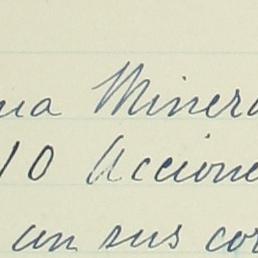 ua Minera
10 Accione
un sus cor